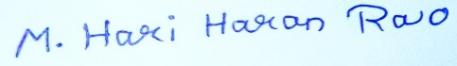 M. Hari Haran Rao